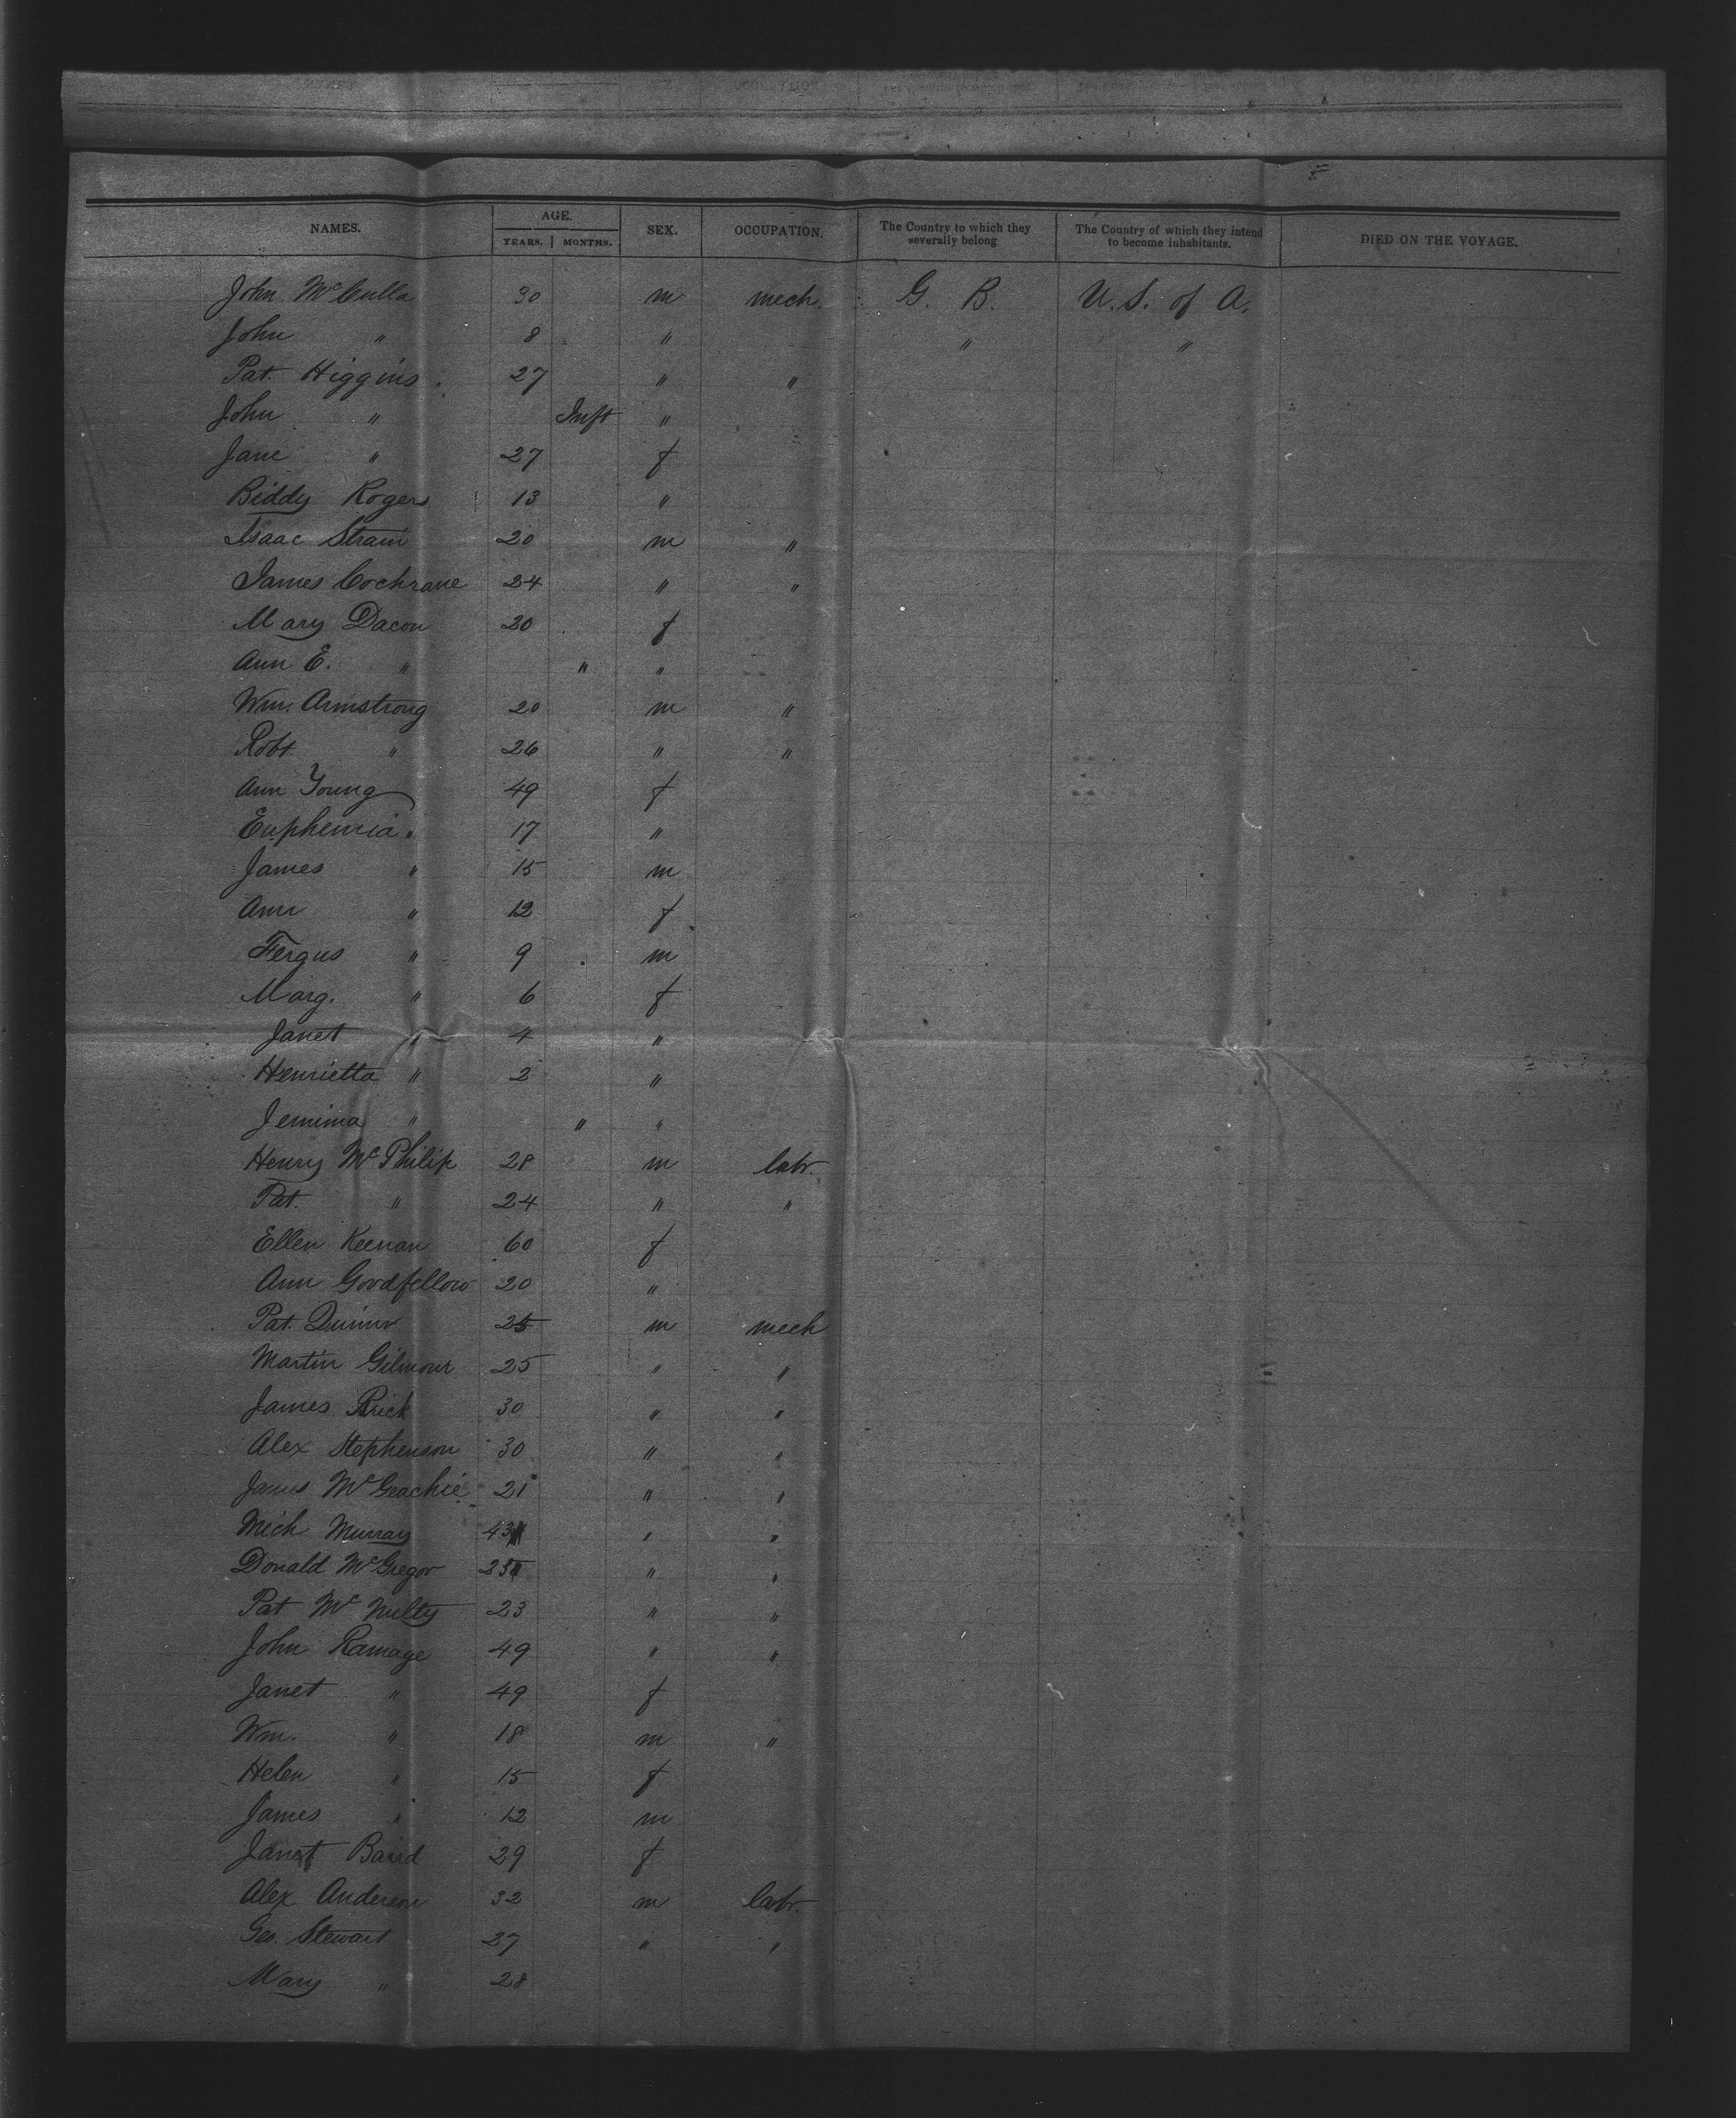 NAMES. AGE. YEARS. MONTHS. SEX. OCCUPATION. The Country to which they severally belong The Country of which they intend to become inhabitants. DIED ON THE VOYAGE.
John McCulla 30 m mech. G. B. U.S. of A.
John " 8 " " "
Pat. Higgins. 27 " "
John " Inft "
Jane " 27 f
Biddy Rogers 13 "
Isaac Strain 20 m "
James Cochrane 24 " "
Mary Dacon 20 f
Ann E. " " "
Wm. Armstrong 20 m "
Robt. " 26 " "
Ann Young 49 f
Euphemia " 17 "
James " 15 m
Ann " 12 f
Fergus " 9 m
Marg. " 6 f
Janet " 4 "
Henrietta " 2 "
Jemima " " "
Henry McPhilip 28 m labr.
Pat. " 24 " "
Ellen Keenan 60 f
Ann Goodfellow 20 "
Pat. Quinn m mech
Martin Gilmour 25 " "
James 30 " "
Alex Stephenson 30 " "
James McGeachie 21 " "
Mich Murray 43 " "
Donald McGregor " "
Pat McNulty 23 " "
John Ramage 49 " "
Janet " 49 f
Wm. " 18 m "
Helen " 15 f
James " 12 m
Janet Baird 29 f
Alex Anderson 32 m labr.
Geo. Stewart 27 " "
Mary " 28